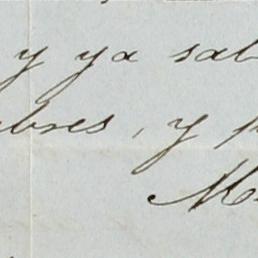 y ya sab
bres, y p
M